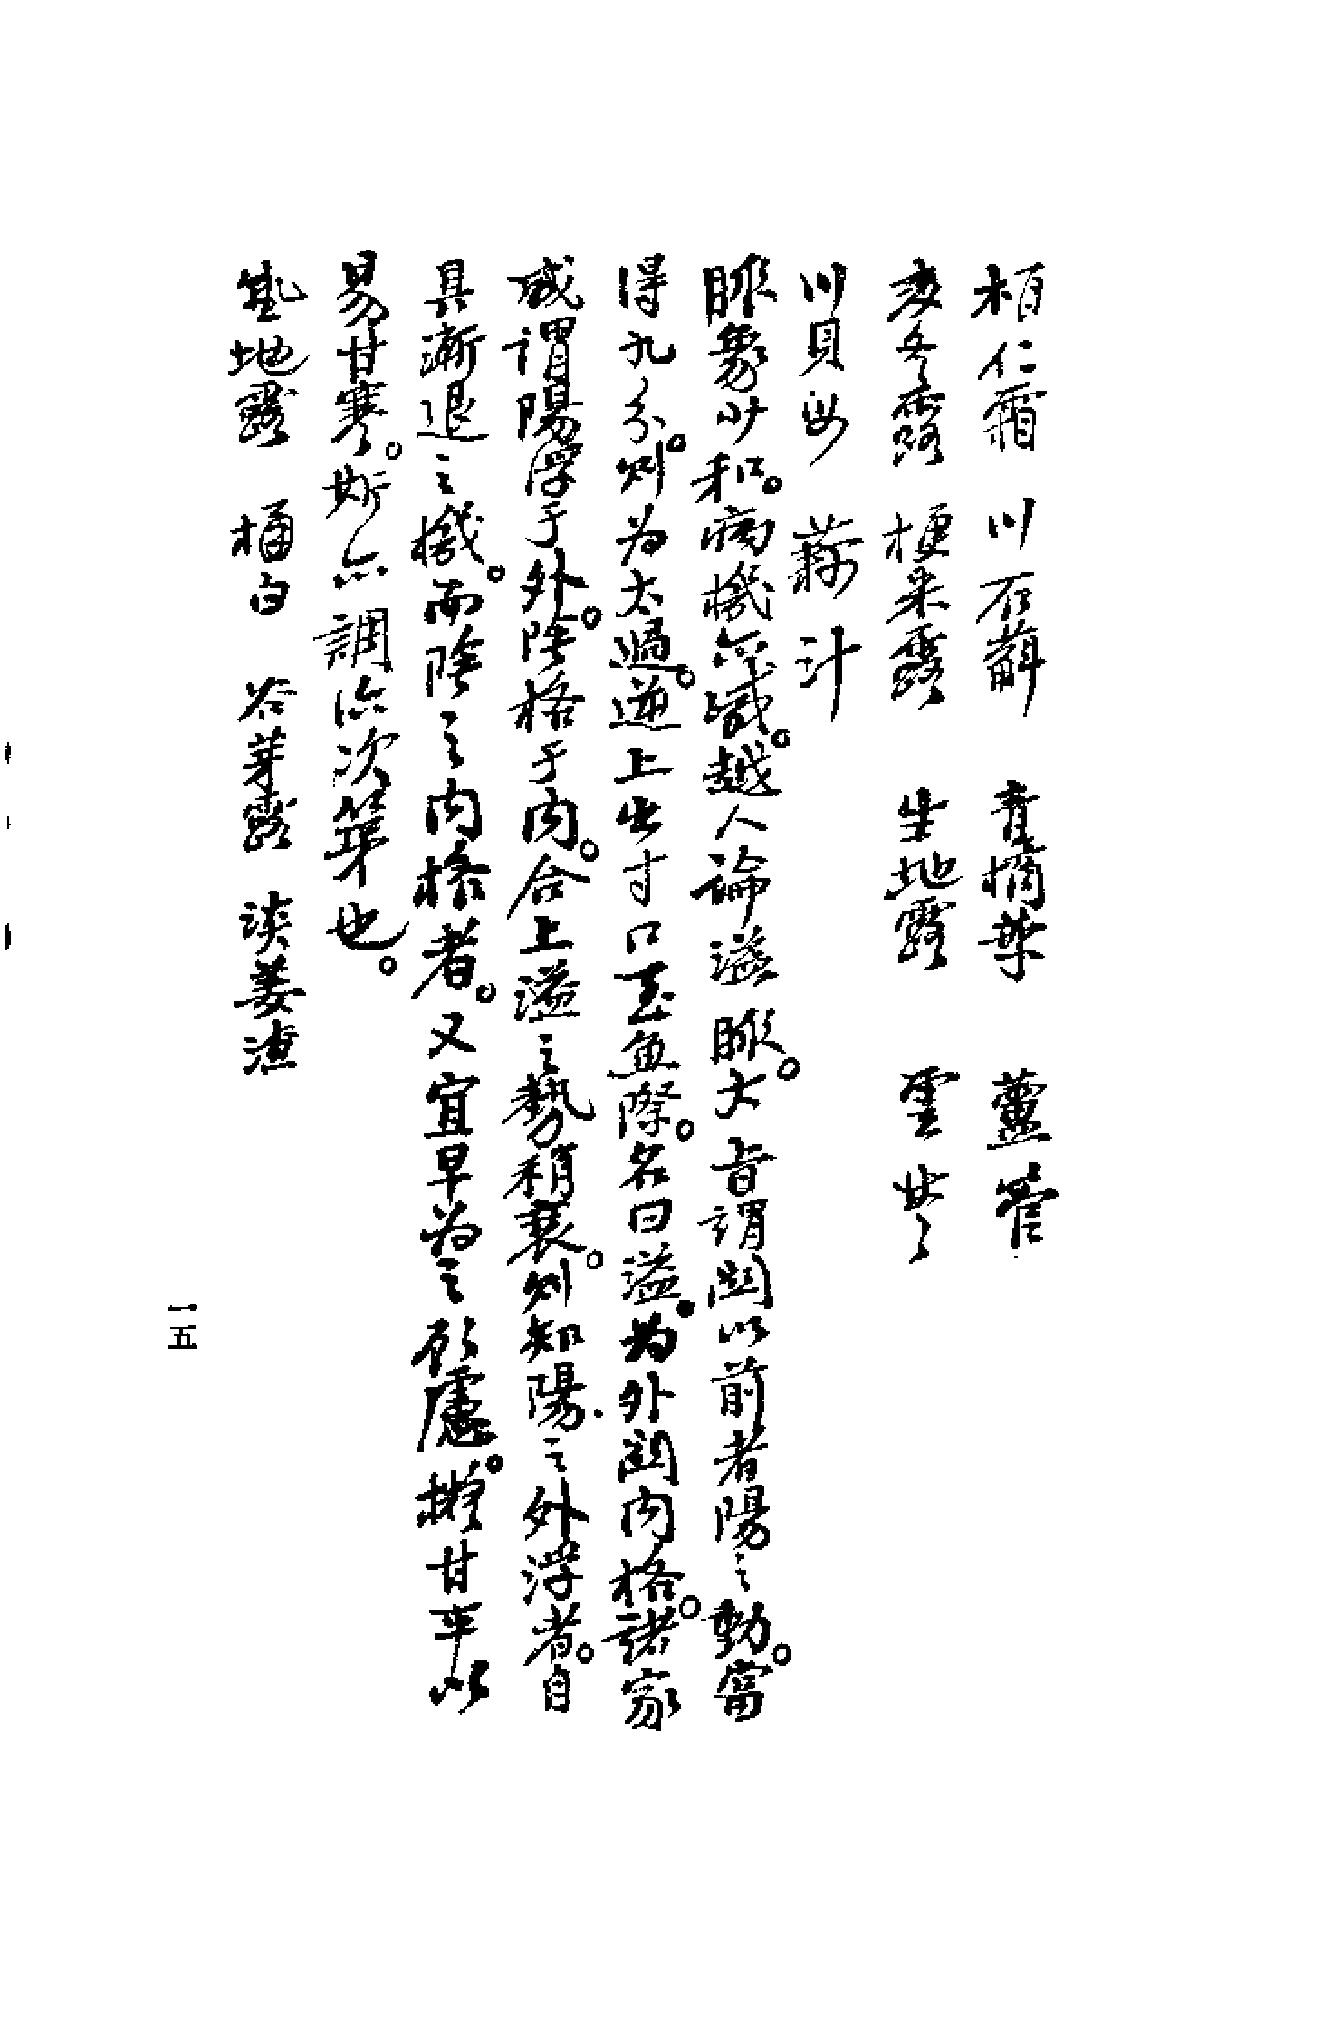 柏仁霜 川石斛 青橘葉 薑管
麥冬露 梗米露 生地露 雲苓
川貝母 藕汁
脈象少和。病機亦減。越人論溢脈。大旨謂關以前者陽之動。當
得九分。則為太過。遊上出寸口至魚際。名曰溢。為外關內格。諸家
咸謂陽浮于外。陰格于內。合上溢之勢稍衰。則知陽之外浮者。自
具漸退之機。而陰之內格者。又宜早為之顧慮。擬甘平以
易甘寒。斯亦調治次第也。
墊地露 橘白 谷芽露 淡姜渣
一五